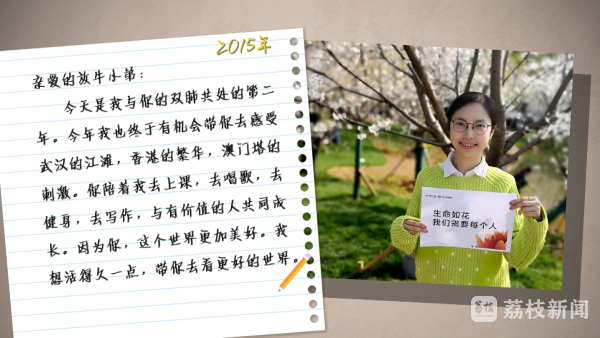 2015年
亲爱的放牛小弟：
今天是我与你的双肺共处的第二
年。今年我也终于有机会带你去感受
武汉的江滩，香港的繁华，澳门塔的
刺激。你陪着我去上课，去唱歌，去
健身，去写作，与有价值的人共同成
长。因为你，这个世界更加美好。我
想活得久一点，带你去看更好的世界。
生命如花
我们需要每个人
荔枝
荔枝新闻